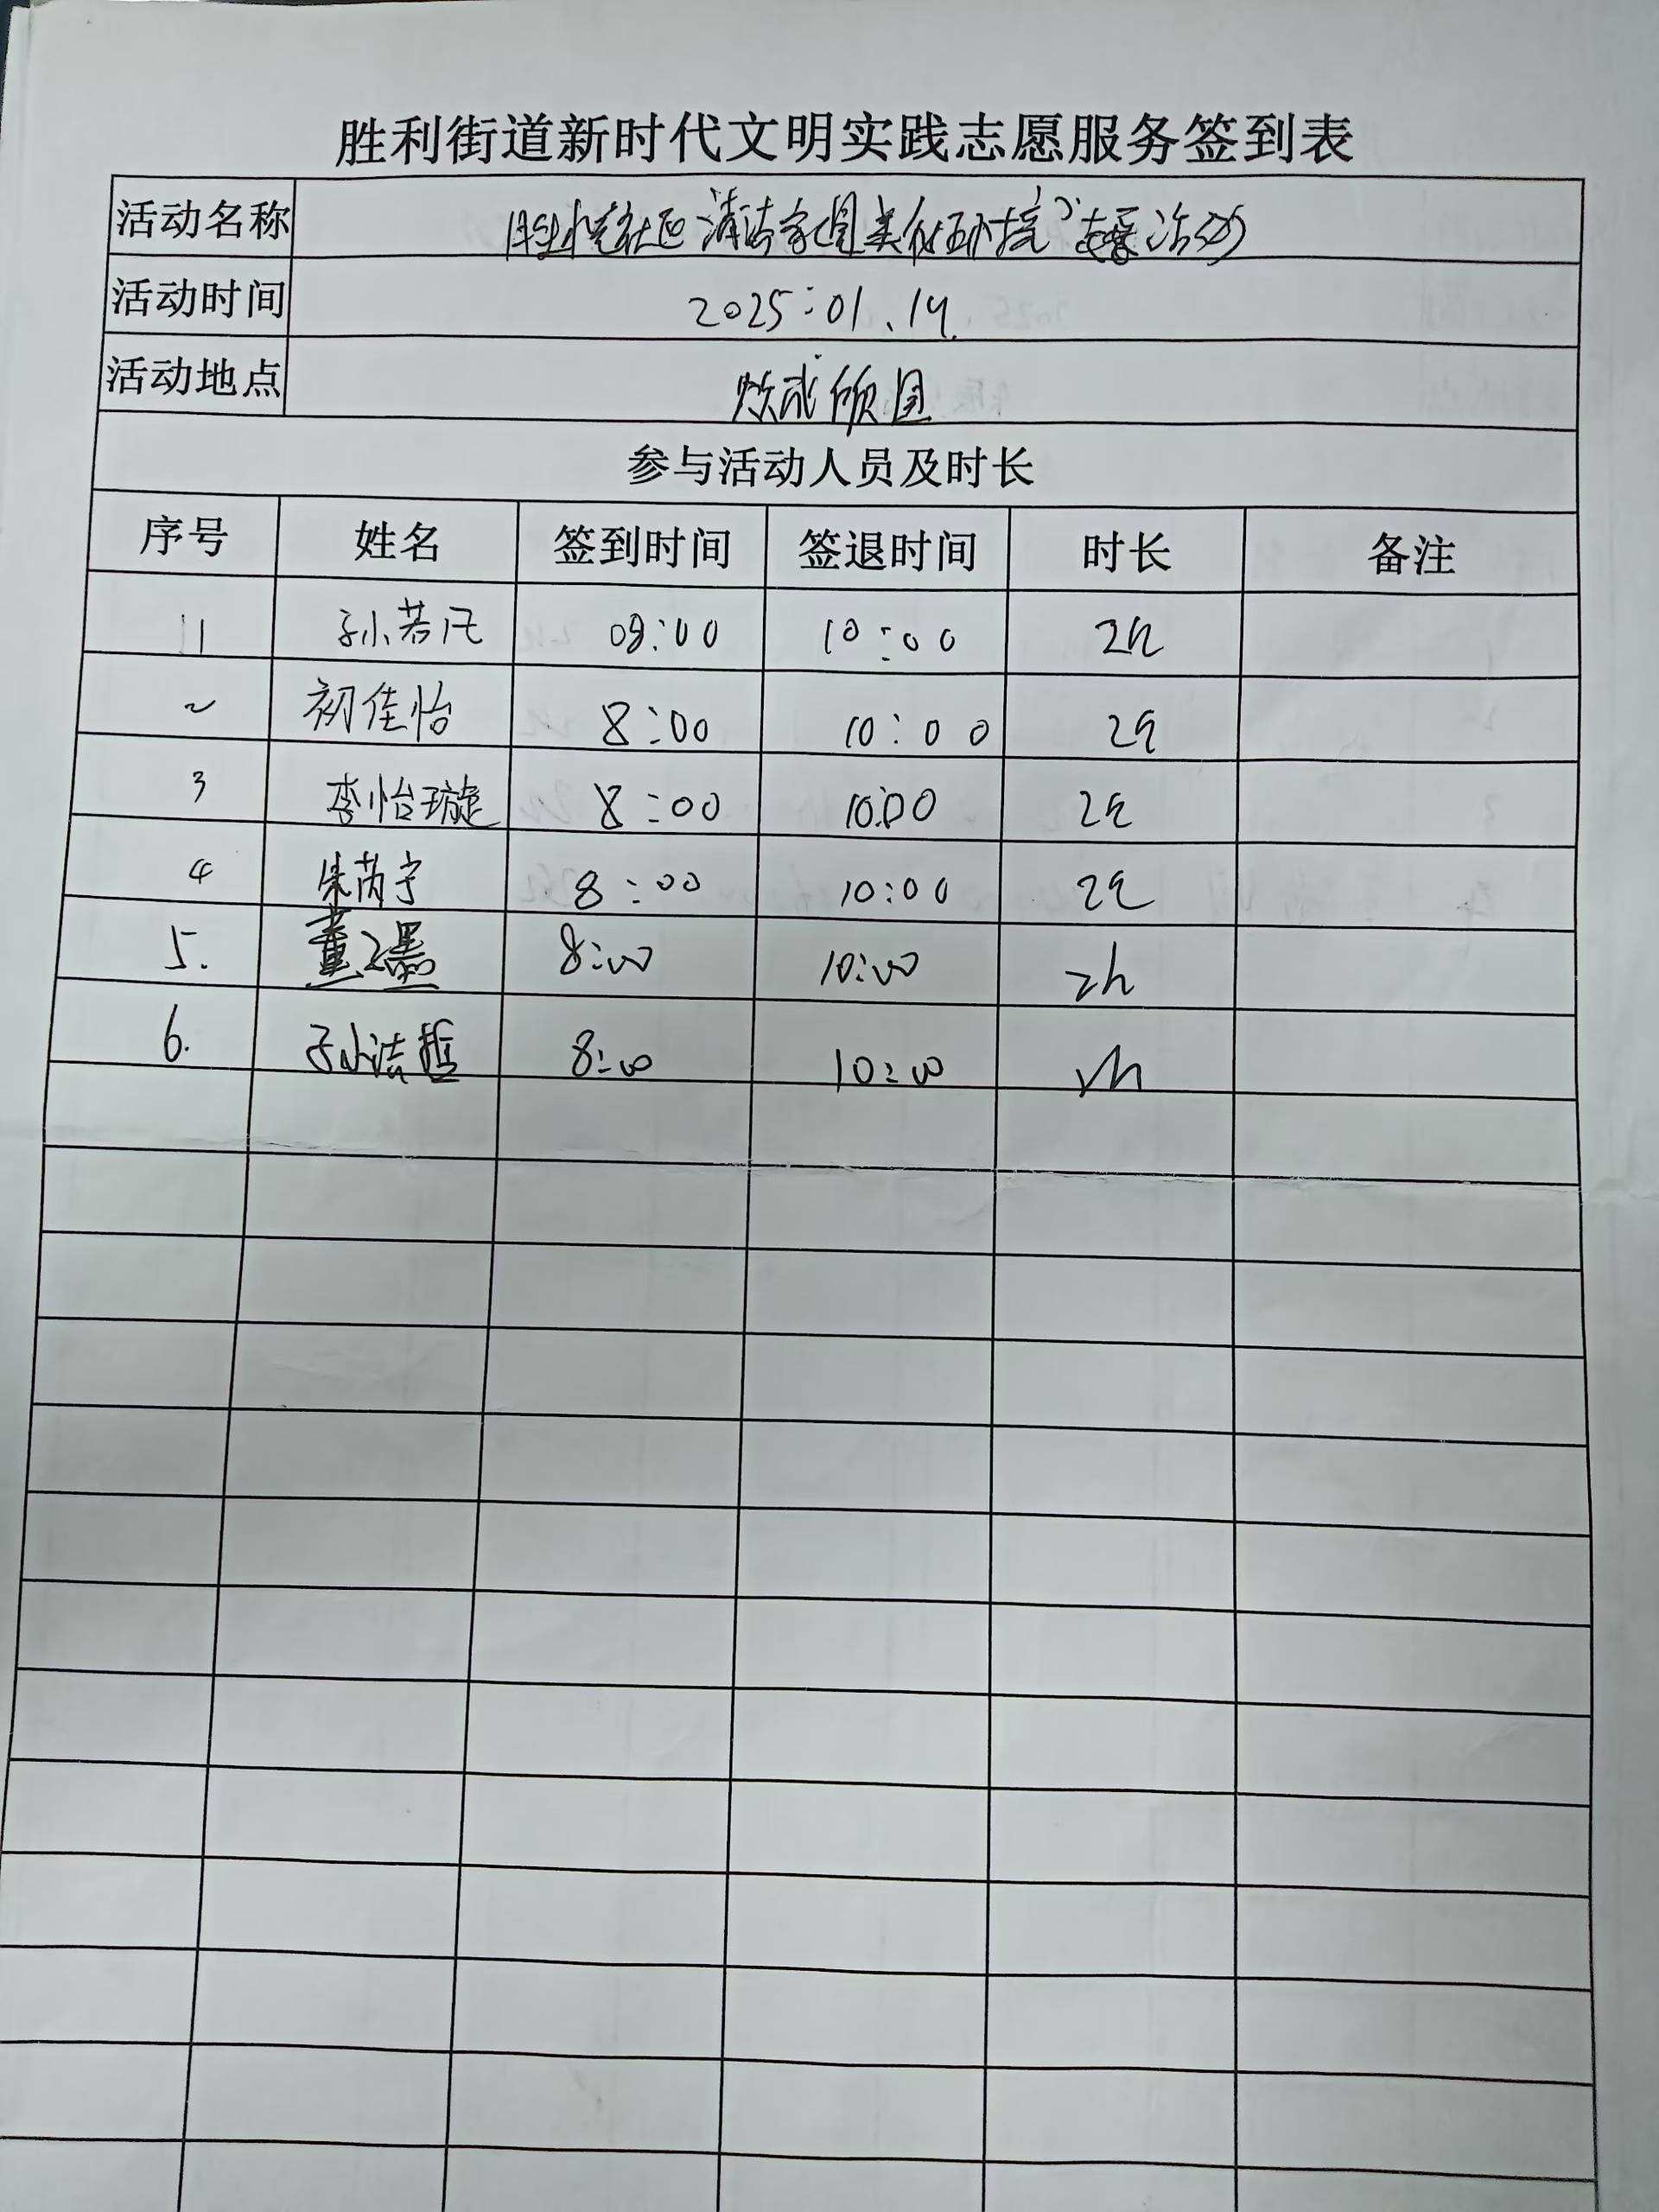 胜利街道新时代文明实践志愿服务签到表
活动名称 社区清洁家园美化环境”志愿活动
活动时间 2025:01.14.
活动地点 颐园
参与活动人员及时长
序号 姓名 签到时间 签退时间 时长 备注
1 孙若凡 08:00 10:00 2h
2 初佳怡 8:00 10:00 2h
3 李怡璇 8:00 10:00 2h
4 朱芮宁 8:00 10:00 2h
5. 董墨 8:00 10:00 2h
6. 孙洁 8:00 10:00 2h